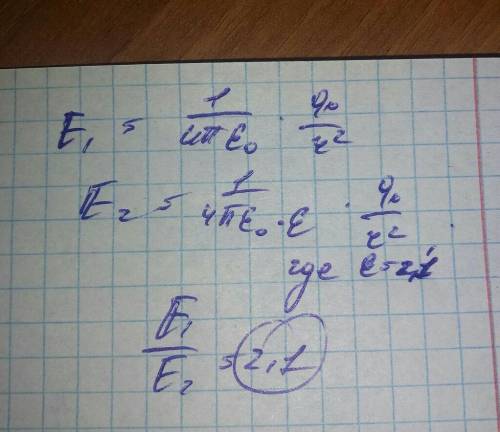 E₁ = 1/(4πε₀) · q₀/r²
E₂ = 1/(4πε₀·ε) · q₀/r²
где ε=2,1
E₁/E₂ = 2,1